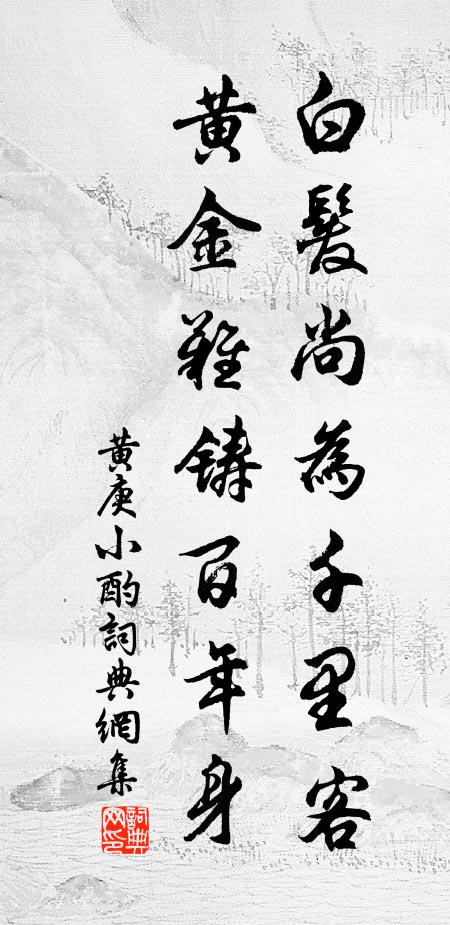 白髮尚為千里客
黃金難鑄百年身
黃庚小酌詞典網集
詞典網印